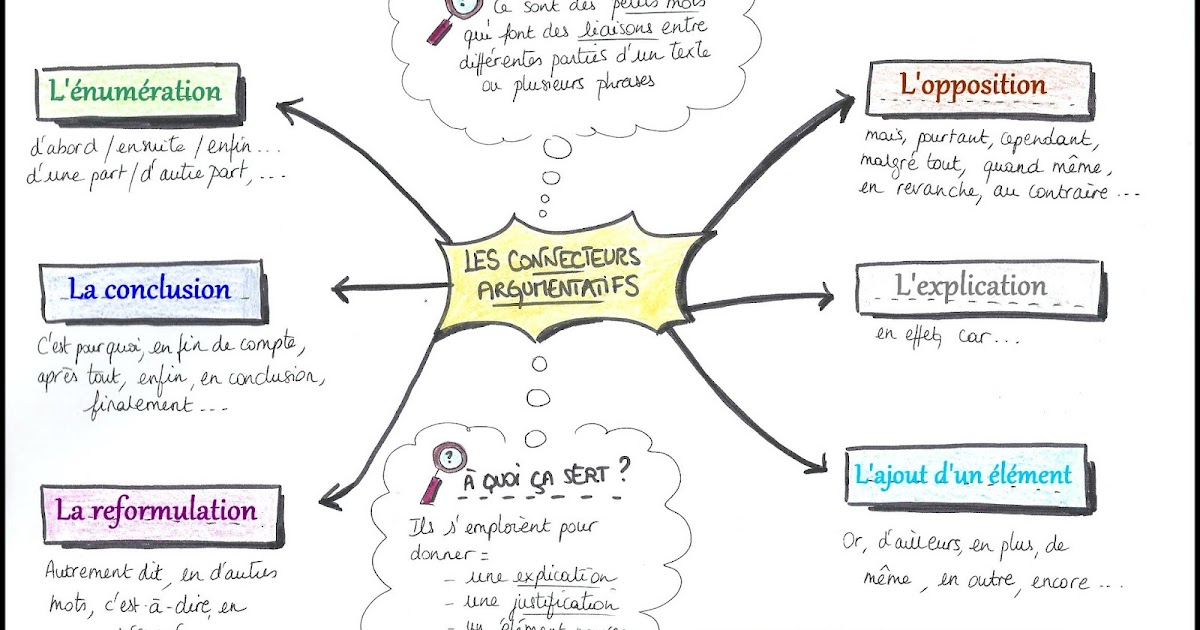 Ce sont des petits mots
qui font des liaisons entre
différentes parties d'un texte
ou plusieurs phrases
L'énumération
d'abord / ensuite / enfin...
d'une part / d'autre part, ...
L'opposition
mais, pourtant, cependant,
malgré tout, quand même,
en revanche, au contraire ...
LES CONNECTEURS
ARGUMENTATIFS
La conclusion
C'est pourquoi, en fin de compte,
après tout, enfin, en conclusion,
finalement ...
L'explication
en effet, car...
La reformulation
Autrement dit, en d'autres
mots, c'est-à-dire, en
?
À QUOI ÇA SERT ?
Ils s'emploient pour
donner =
- une explication
- une justification
- un élément
L'ajout d'un élément
Or, d'ailleurs, en plus, de
même, en outre, encore ...